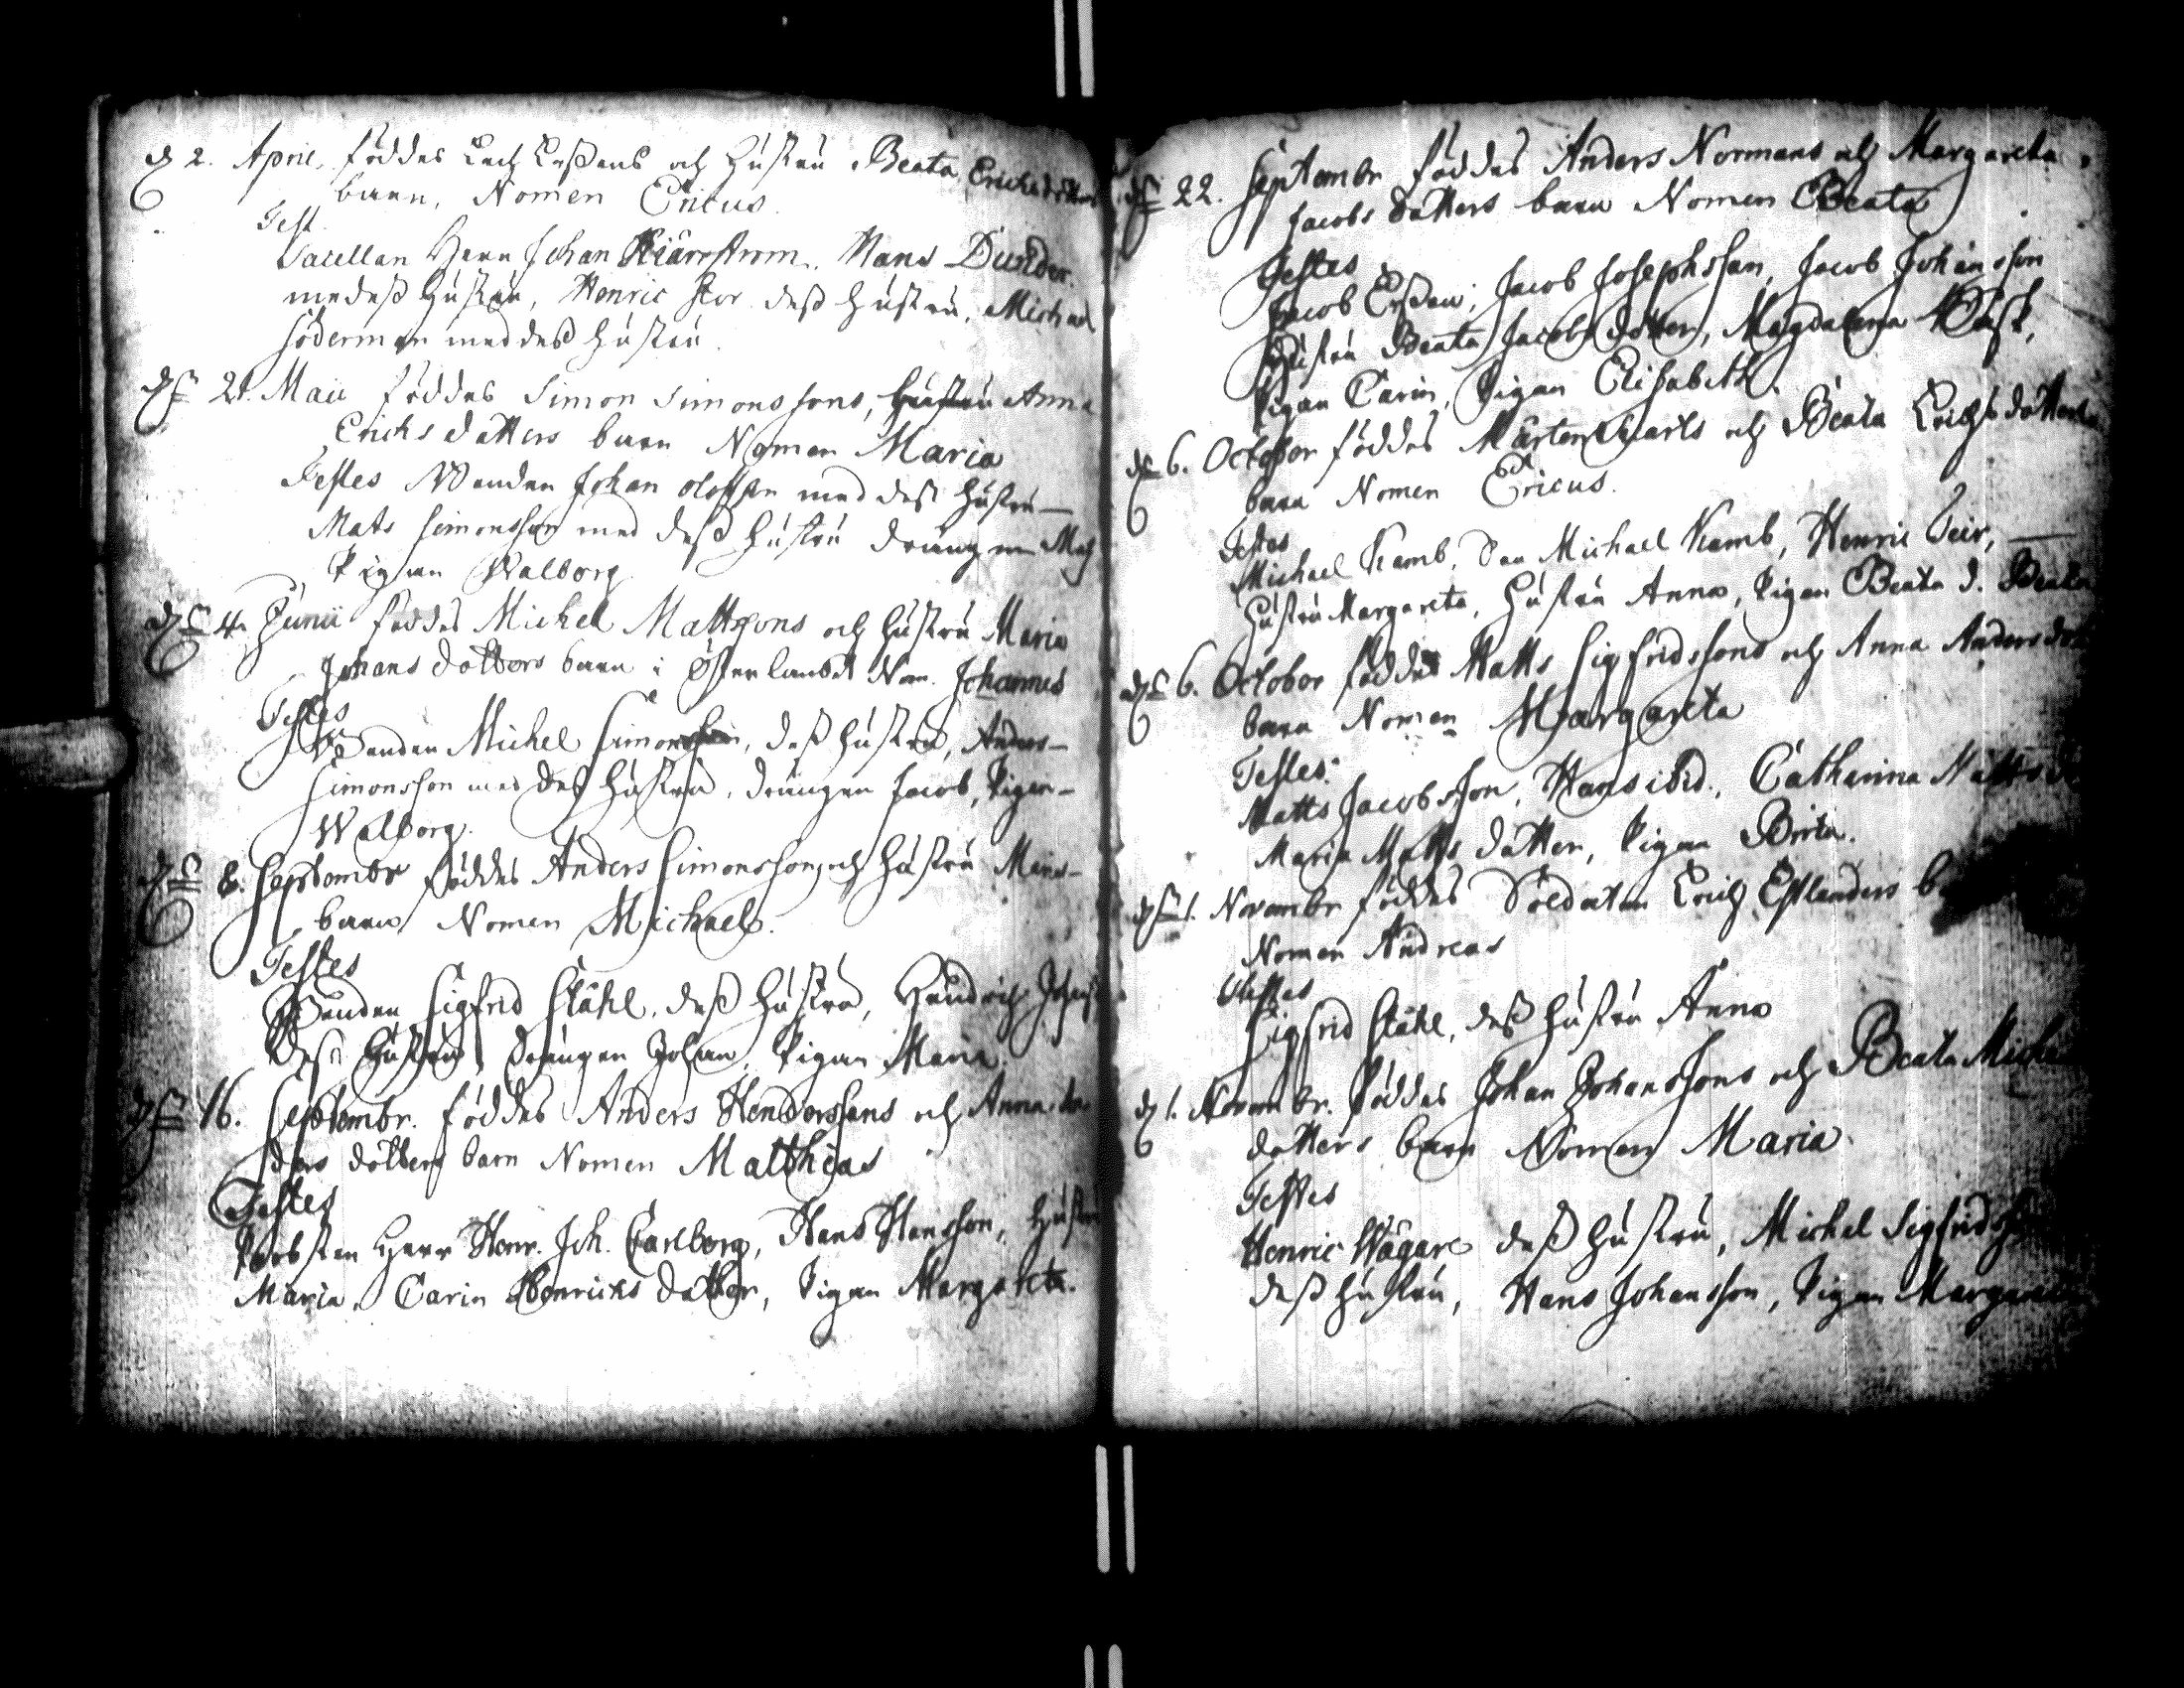 d. 2. April, föddes Erich Ersßons och Hustru Beata Erichsdotters
barn, Nomen Ericus.
Test.
Sacellan Herr Johan Kiärrstrom. Hans Dunder
med deß hustru, Henric Stor deß hustru, Michael
Söderman med deß hustru.
d. 21. Maii föddes Simon Simonssons, hustru Anna
Erichs datters barn Nomen Maria
Testes Bonden Johan Olofsson med deß hustru
Mats Simonsson med deß hustru drängen Mats
Pigan Walborg.
d. 4. Junii föddes Michel Mattssons och hustru Maria
Johans dotters barn i Österlandet Nom. Johannes
Testes
Bonden Michel Simonsson, deß hustru, Anders
Simonsson med deß hustru, drängen Jacob, Pigan
Walborg.
d. 8. Septembr föddes Anders Simonssons och hustru Marias
barn Nomen Michael.
Testes
Bonden Sigfrid Ståhl, deß hustru, Hendrich
deß hustru, drängen Johan, Pigan Maria
d. 16. Septembr. föddes Anders Henderssons och Anna
dotters barn Nomen Matthias
Testes
Probsten Herr Henr. Joh. Carlborg, Hans Hansson, hustru
Maria, Carin Henrichs datter, Pigan Margareta.
d. 22. Septembr föddes Anders Normans och Margareta
Jacobs datters barn Nomen Beata
Testes
Jacob Ersson, Jacob Josephsson, Jacob Johansson
Hustru Beata Jacobs dotter, Magdalena
Pigan Carin, Pigan Elisabeth.
d. 6. October föddes Mårten och Beata Erichs datters
barn Nomen Ericus.
Testes
Michael Kamb, Michael Kamb, Henric Teir,
Hustru Margareta, Hustru Anna, Pigan Beata d. Beata
d. 6. October föddes Matts Sigfridssons och Anna Anders
barn Nomen Margareta
Testes.
Matts Jacobsson, Hans ibid., Catharina Matts
Maria Matts datter, Pigan Brita.
d. 1. Novembr föddes Soldaten Erich Estlanders
Nomen Andreas
Testes
Sigfrid Ståhl, deß hustru Anna
d. 1. Novembr. föddes Johan Johanssons och Beata
datters barn Nomen Maria.
Testes
Henric Wägare deß hustru, Michel
deß hustru, Hans Johansson, Pigan